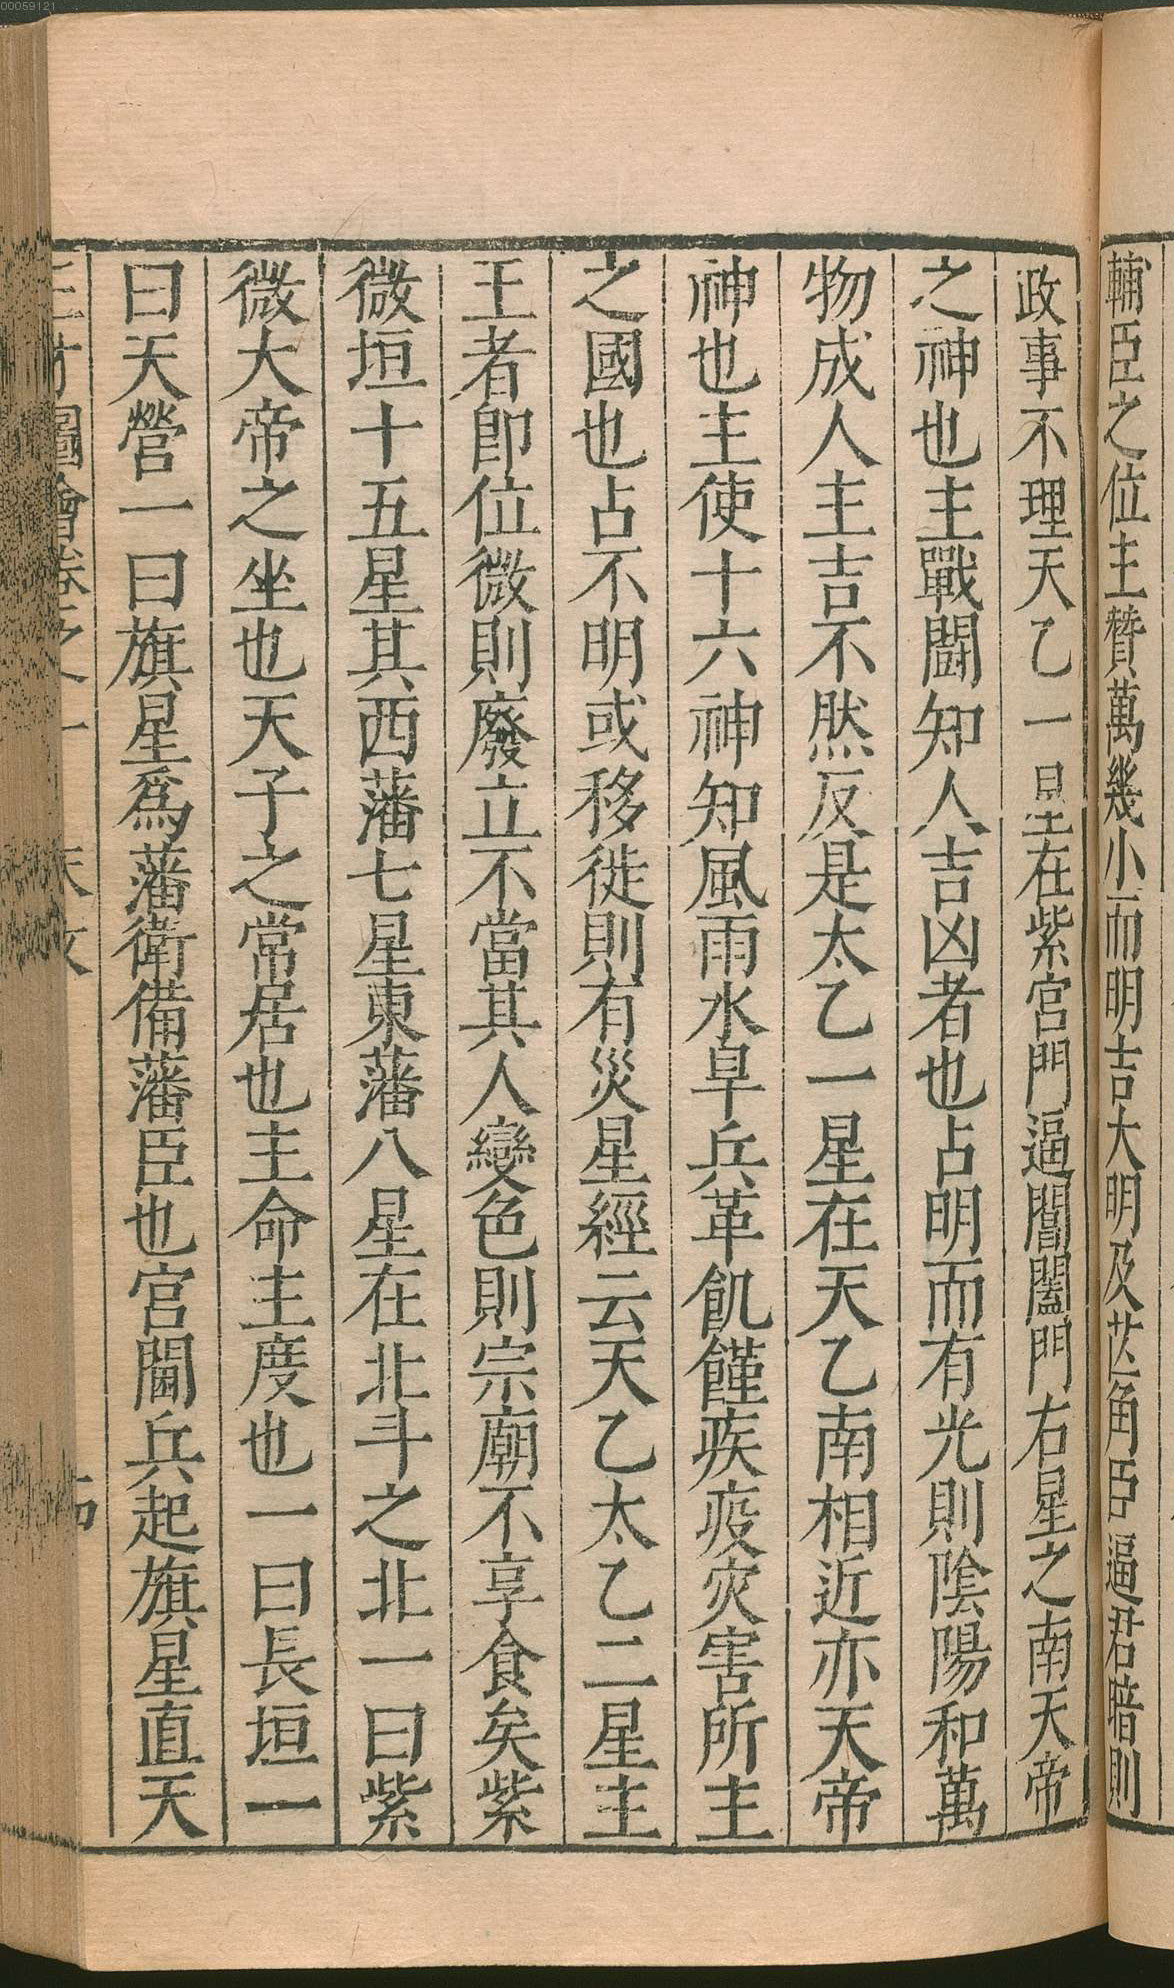 00059121
輔臣之位主贊萬幾小而明吉大明及芒角臣逼君暗則
政事不理天乙一星在紫宮門逼閶闔門右星之南天帝
之神也主戰鬪知人吉凶者也占明而有光則陰陽和萬
物成人主吉不然反是太乙一星在天乙南相近亦天帝
神也主使十六神知風雨水旱兵革飢饉疾疫灾害所主
之國也占不明或移徙則有災星經云天乙太乙二星主
王者即位微則廢立不當其人變色則宗廟不享食矣紫
微垣十五星其西藩七星東藩八星在北斗之北一曰紫
微大帝之坐也天子之常居也主命主度也一曰長垣一
曰天營一曰旗星爲藩衛備藩臣也宮閫兵起旗星直天
三才圖會卷之一 天文